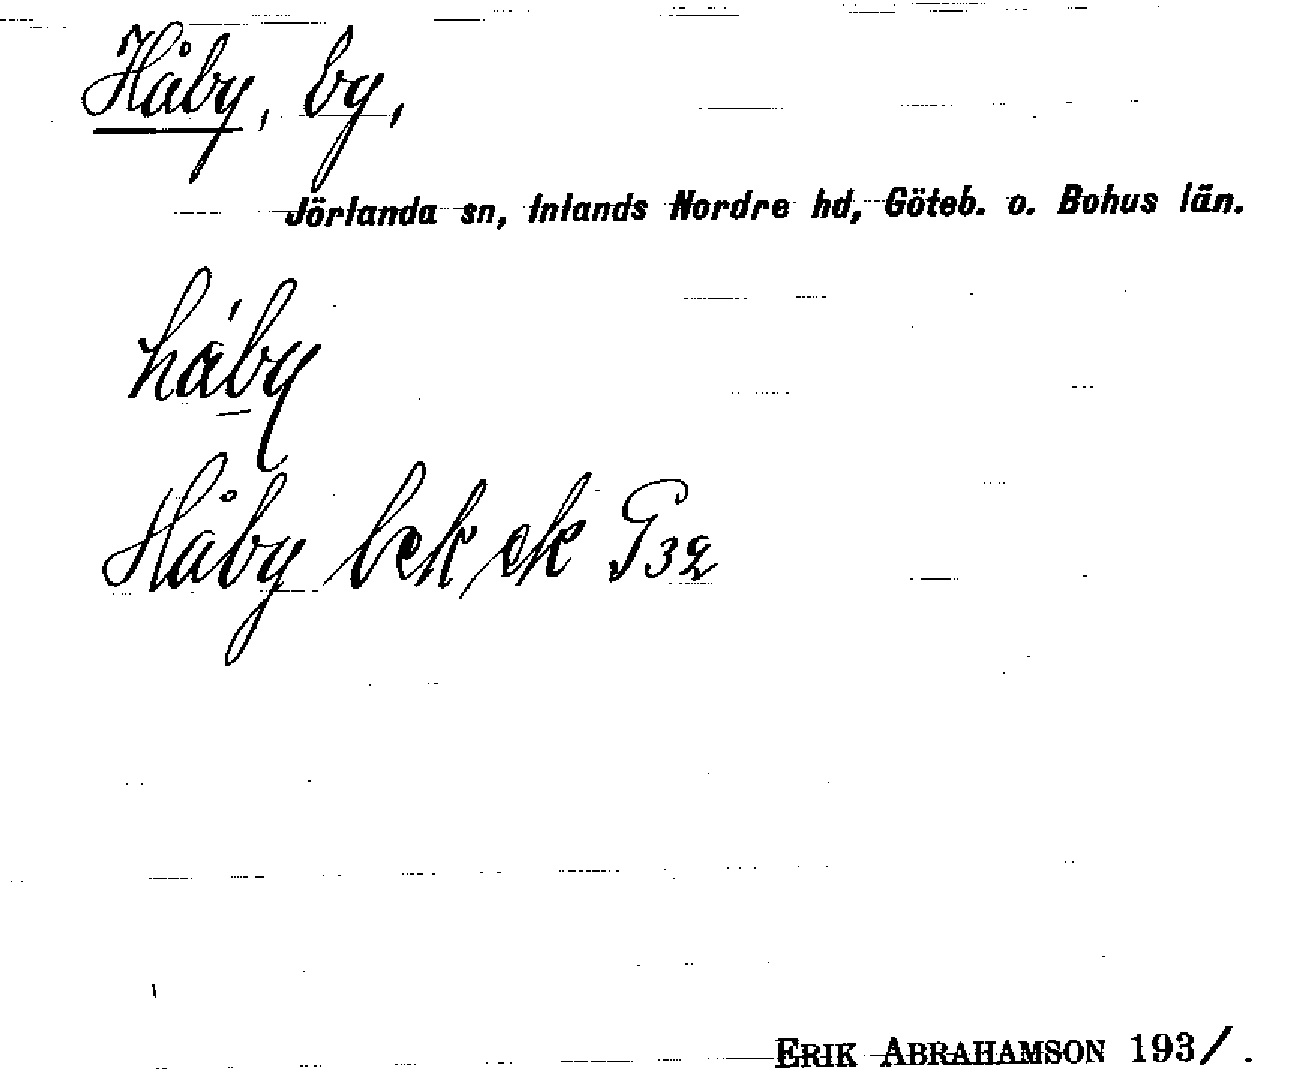 Håby, by,
Jörlanda sn, Inlands Nordre hd, Göteb. o. Bohus län.
håby
Håby bek, ek G32
ERIK ABRAHAMSON 193/.